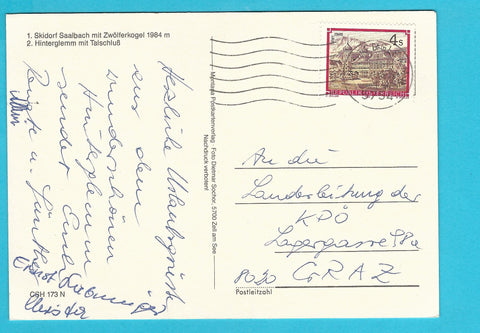 1. Skidorf Saalbach mit Zwölferkogel 1984 m
2. Hinterglemm mit Talschluß
Herzliche Urlaubsgrüße
aus dem
wunderschönen
Hinterglemm
sendet Euch
u. Günther
Ernst
CSH 173 N
Postkartenverlag · Foto Dietmar Sochor, 5700 Zell am See
Nachdruck verboten!
4 S
REPUBLIK ÖSTERREICH
5754
An die
Landesleitung der
KPÖ
Lagergasse 98a
8020 GRAZ
Postleitzahl